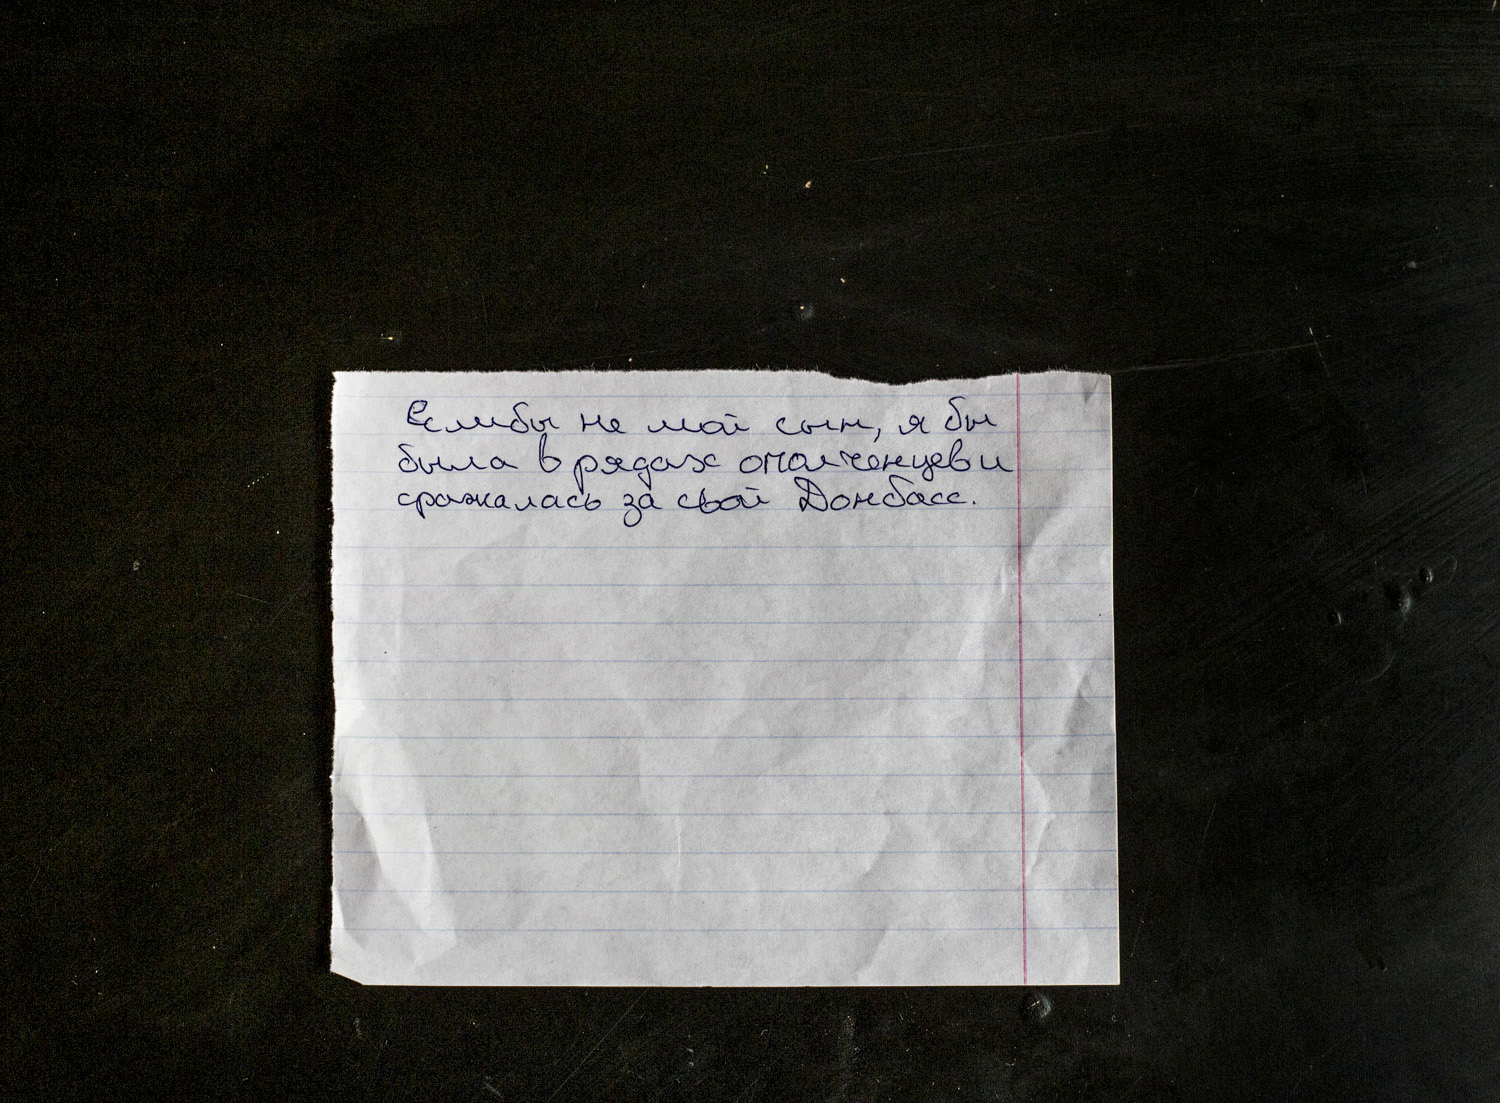 Еслибы не мой сын, я бы
была в рядах ополченцев и
сражалась за свой Донбасс.